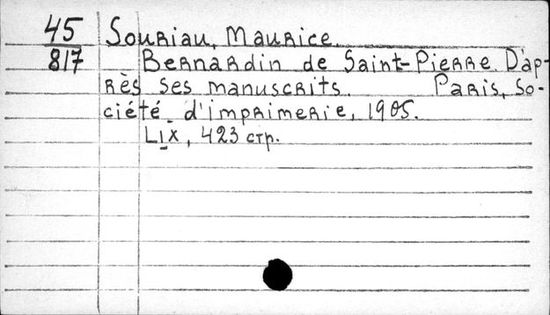 45 Souriau, Maurice.
817 Bernardin de Saint-Pierre D'ap-
rès ses manuscrits. Paris, so-
ciété d'imprimerie, 1905.
LIX, 423 стр.